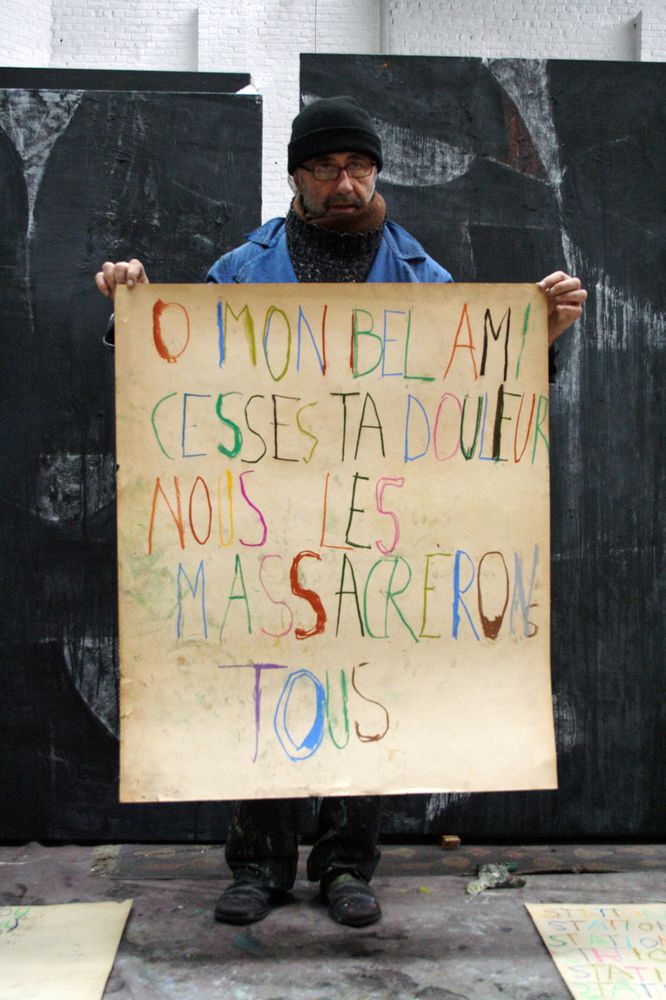 O MON BEL AMI
CESSES TA DOULEUR
NOUS LES
MASSACRERONS
TOUS
STATION
STATION
STATION